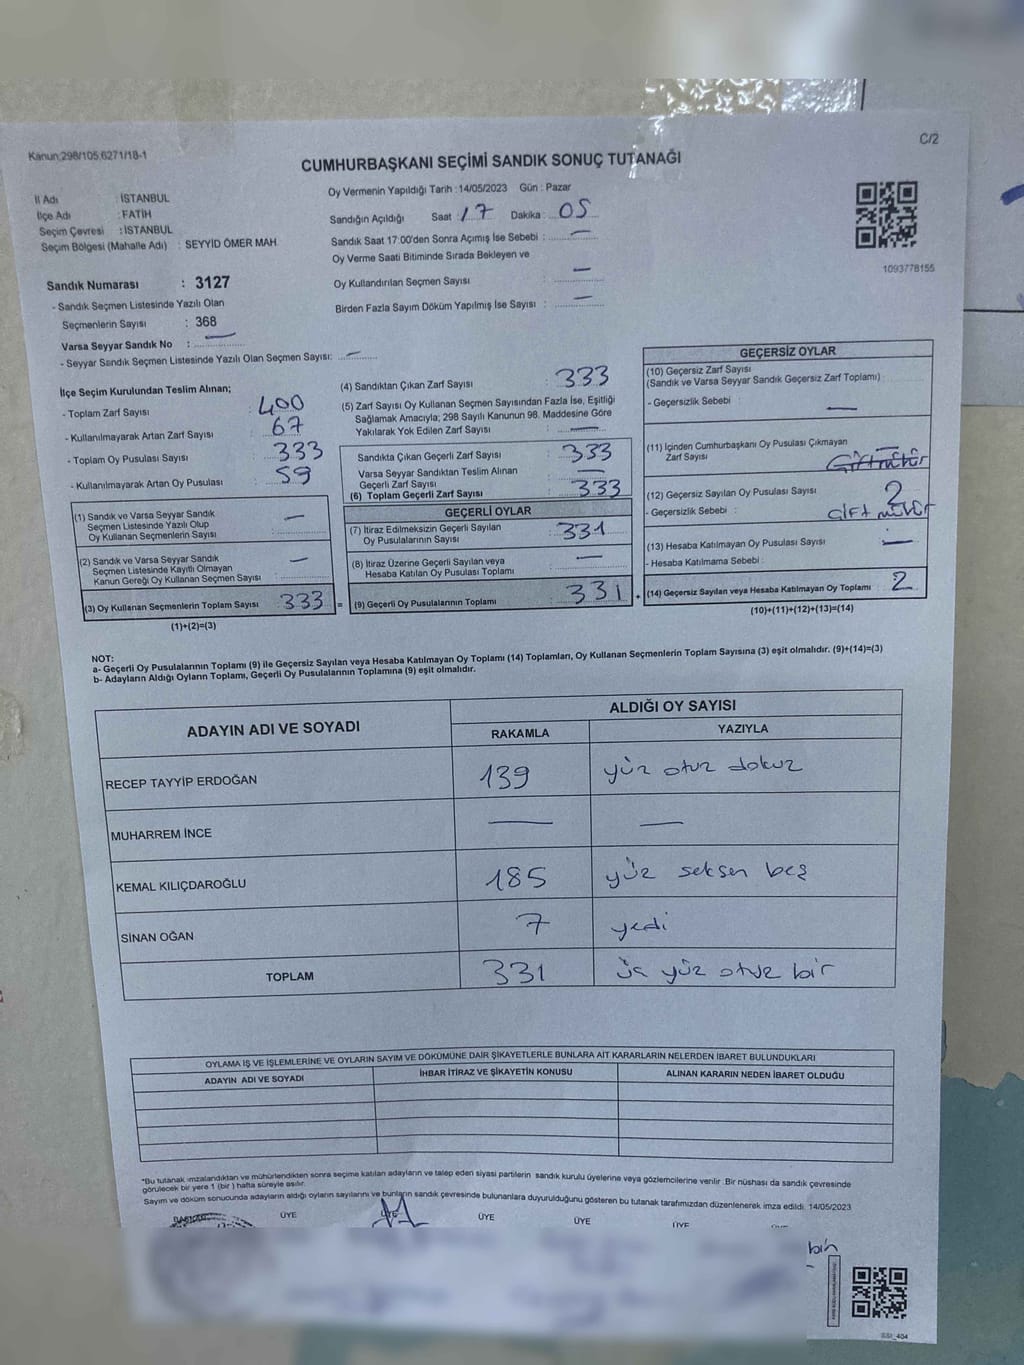 Kanun:298/105,6271/18-1
C/2
CUMHURBAŞKANI SEÇİMİ SANDIK SONUÇ TUTANAĞI
İl Adı : İSTANBUL
İlçe Adı : FATİH
Seçim Çevresi : İSTANBUL
Seçim Bölgesi (Mahalle Adı) : SEYYİD ÖMER MAH.
Sandık Numarası : 3127
- Sandık Seçmen Listesinde Yazılı Olan
Seçmenlerin Sayısı : 368
Varsa Seyyar Sandık No : —
- Seyyar Sandık Seçmen Listesinde Yazılı Olan Seçmen Sayısı: —
Oy Vermenin Yapıldığı Tarih : 14/05/2023 Gün : Pazar
Sandığın Açıldığı Saat : 17 Dakika : 05
Sandık Saat 17:00'den Sonra Açımış İse Sebebi : —
Oy Verme Saati Bitiminde Sırada Bekleyen ve
Oy Kullandırılan Seçmen Sayısı : —
Birden Fazla Sayım Döküm Yapılmış İse Sayısı : —
1093778155
İlçe Seçim Kurulundan Teslim Alınan;
- Toplam Zarf Sayısı : 400
- Kullanılmayarak Artan Zarf Sayısı : 67
- Toplam Oy Pusulası Sayısı : 333
- Kullanılmayarak Artan Oy Pusulası : 59
(1) Sandık ve Varsa Seyyar Sandık
Seçmen Listesinde Yazılı Olup
Oy Kullanan Seçmenlerin Sayısı —
(2) Sandık ve Varsa Seyyar Sandık
Seçmen Listesinde Kayıtlı Olmayan
Kanun Gereği Oy Kullanan Seçmen Sayısı —
(3) Oy Kullanan Seçmenlerin Toplam Sayısı 333 =
(1)+(2)=(3)
(4) Sandıktan Çıkan Zarf Sayısı : 333
(5) Zarf Sayısı Oy Kullanan Seçmen Sayısından Fazla İse, Eşitliği
Sağlamak Amacıyla; 298 Sayılı Kanunun 98. Maddesine Göre
Yakılarak Yok Edilen Zarf Sayısı : —
Sandıkta Çıkan Geçerli Zarf Sayısı : 333
Varsa Seyyar Sandıktan Teslim Alınan
Geçerli Zarf Sayısı : —
(6) Toplam Geçerli Zarf Sayısı : 333
GEÇERLİ OYLAR
(7) İtiraz Edilmeksizin Geçerli Sayılan
Oy Pusulalarının Sayısı : 331
(8) İtiraz Üzerine Geçerli Sayılan veya
Hesaba Katılan Oy Pusulası Toplamı —
(9) Geçerli Oy Pusulalarının Toplamı 331 +
GEÇERSİZ OYLAR
(10) Geçersiz Zarf Sayısı
(Sandık ve Varsa Seyyar Sandık Geçersiz Zarf Toplamı) :
- Geçersizlik Sebebi : —
(11) İçinden Cumhurbaşkanı Oy Pusulası Çıkmayan
Zarf Sayısı — Çift mühür
(12) Geçersiz Sayılan Oy Pusulası Sayısı : 2
- Geçersizlik Sebebi : Çift mühür
(13) Hesaba Katılmayan Oy Pusulası Sayısı : —
- Hesaba Katılmama Sebebi :
(14) Geçersiz Sayılan veya Hesaba Katılmayan Oy Toplamı : 2
(10)+(11)+(12)+(13)=(14)
NOT:
a- Geçerli Oy Pusulalarının Toplamı (9) ile Geçersiz Sayılan veya Hesaba Katılmayan Oy Toplamı (14) Toplamları, Oy Kullanan Seçmenlerin Toplam Sayısına (3) eşit olmalıdır. (9)+(14)=(3)
b- Adayların Aldığı Oyların Toplamı, Geçerli Oy Pusulalarının Toplamına (9) eşit olmalıdır.
ADAYIN ADI VE SOYADI ALDIĞI OY SAYISI
RAKAMLA YAZIYLA
RECEP TAYYİP ERDOĞAN 139 yüz otuz dokuz
MUHARREM İNCE — —
KEMAL KILIÇDAROĞLU 185 yüz seksen beş
SİNAN OĞAN 7 yedi
TOPLAM 331 üç yüz otuz bir
OYLAMA İŞ VE İŞLEMLERİNE VE OYLARIN SAYIM VE DÖKÜMÜNE DAİR ŞİKAYETLERLE BUNLARA AİT KARARLARIN NELERDEN İBARET BULUNDUKLARI
ADAYIN ADI VE SOYADI İHBAR İTİRAZ VE ŞİKAYETİN KONUSU ALINAN KARARIN NEDEN İBARET OLDUĞU
*Bu tutanak imzalandıktan ve mühürlendikten sonra seçime katılan adayların ve talep eden siyasi partilerin sandık kurulu üyelerine veya gözlemcilerine verilir. Bir nüshası da sandık çevresinde
görülecek bir yere 1 (bir ) hafta süreyle asılır.
Sayım ve döküm sonucunda adayların aldığı oyların sayılarını ve bunların sandık çevresinde bulunanlara duyurulduğunu gösteren bu tutanak tarafımızdan düzenlenerek imza edildi. 14/05/2023
BAŞKAN ÜYE ÜYE ÜYE ÜYE ÜYE
SSI_404